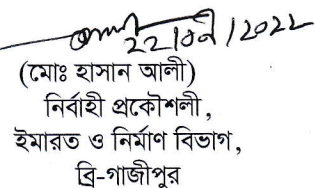 22/05/2022
(মোঃ হাসান আলী)
নির্বাহী প্রকৌশলী,
ইমারত ও নির্মাণ বিভাগ,
ব্রি-গাজীপুর